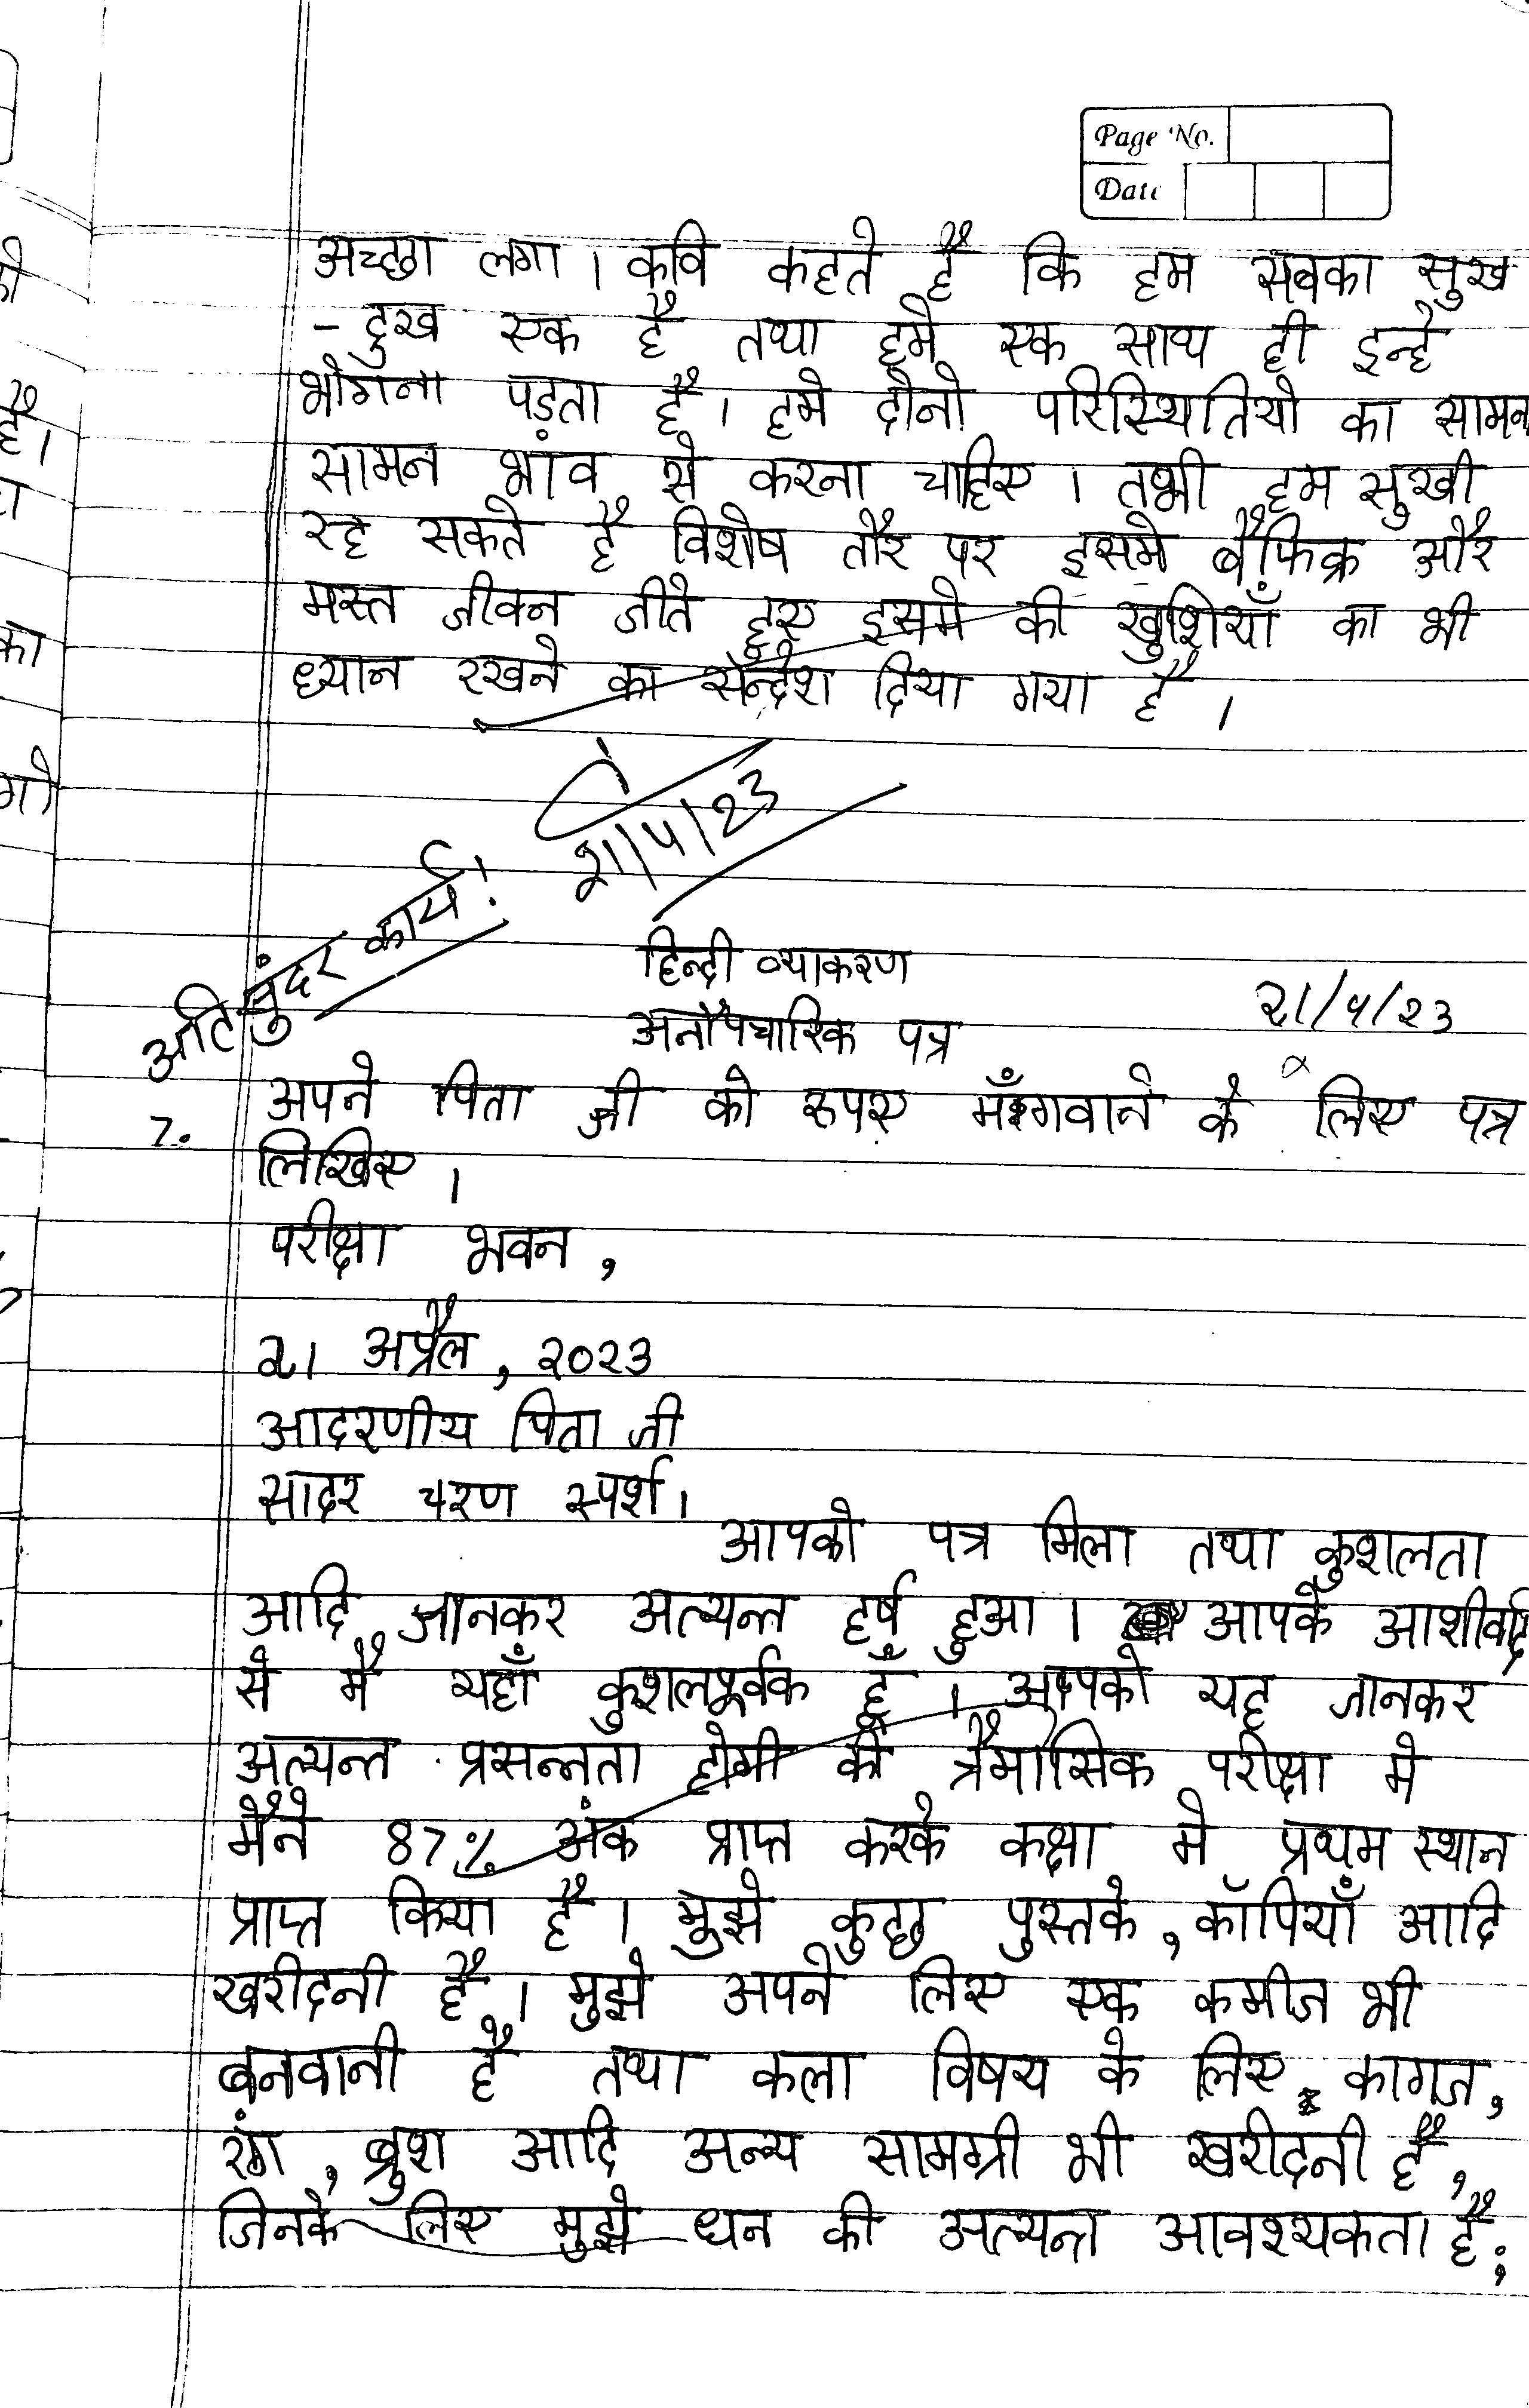 Page No.
Date
अच्छा लगा। कवि कहते हैं कि हम सबका सुख
- दुख एक है तथा हमे एक साथ ही इन्हे
भोगना पड़ता है। हमे दोनो परिस्थितियो का सामना
सामन भांव से करना चाहिए। तभी हम सुखी
रह सकते है विशेष तौर पर इसमे बैफिक्र और
मस्त जीवन जीते हुए इसमे की खुशियाँ का भी
ध्यान रखने का सन्देश दिया गया है।
अति सुंदर कार्य!
२१/४/२३
हिन्दी व्याकरण
अनौपचारिक पत्र
२१/४/२३
7. अपने पिता जी को रुपए मँगवाने के लिए पत्र
लिखिए।
परीक्षा भवन,
२१ अप्रैल, २०२३
आदरणीय पिता जी
सादर चरण स्पर्श।
आपको पत्र मिला तथा कुशलता
आदि जानकर अत्यन्त हर्ष हुआ। आपके आशीर्वाद
से मै यहाँ कुशलपूर्वक हूँ। आपको यह जानकर
अत्यन्त प्रसन्नता होगी की त्रैमासिक परीक्षा मे
मैने 87% अंक प्राप्त करके कक्षा मे प्रथम स्थान
प्राप्त किया है। मुझे कुछ पुस्तके, कॉपियाँ आदि
खरीदनी है। मुझे अपने लिए एक कमीज भी
बनवानी है तथा कला विषय के लिए कागज,
रंग, ब्रुश आदि अन्य सामग्री भी खरीदनी है,
जिनके लिए मुझे धन की अत्यन्त आवश्यकता है;